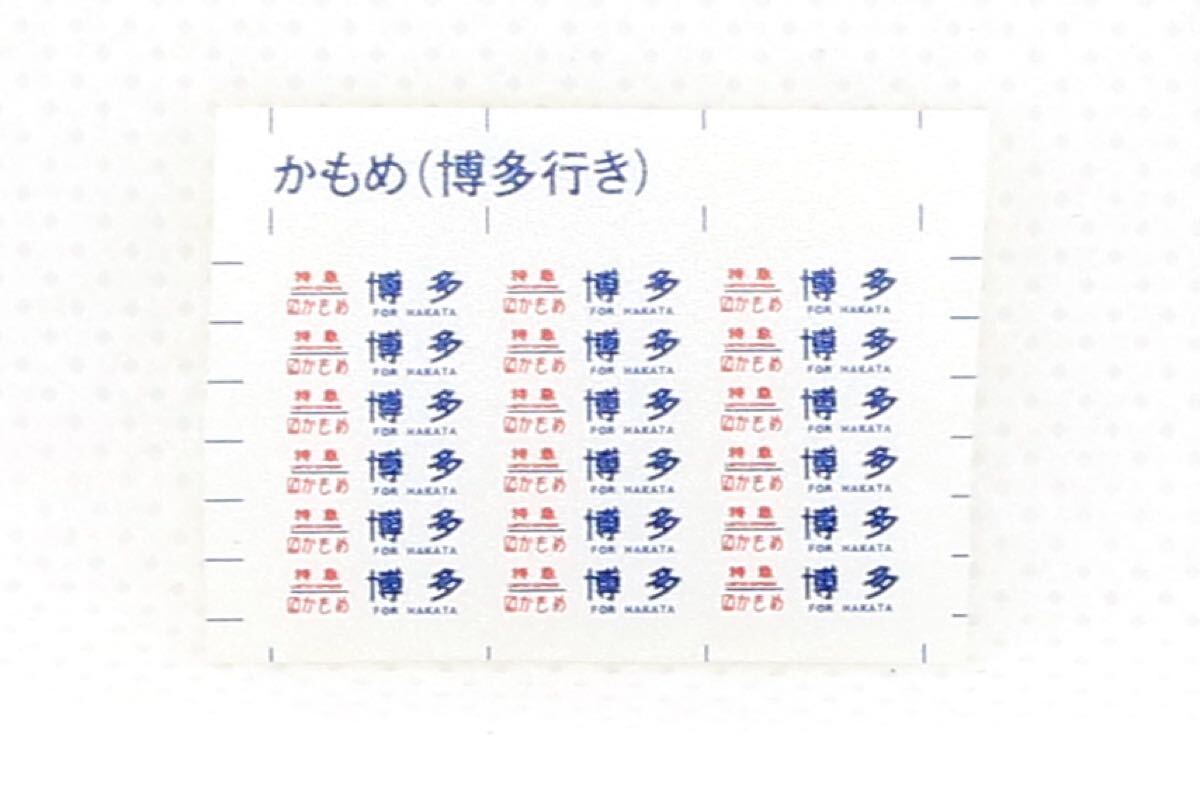 かもめ(博多行き)
特急 博多 特急 博多 特急 博多
かもめ FOR HAKATA かもめ FOR HAKATA かもめ FOR HAKATA
特急 博多 特急 博多 特急 博多
かもめ FOR HAKATA かもめ FOR HAKATA かもめ FOR HAKATA
特急 博多 特急 博多 特急 博多
かもめ FOR HAKATA かもめ FOR HAKATA かもめ FOR HAKATA
特急 博多 特急 博多 特急 博多
かもめ FOR HAKATA かもめ FOR HAKATA かもめ FOR HAKATA
特急 博多 特急 博多 特急 博多
かもめ FOR HAKATA かもめ FOR HAKATA かもめ FOR HAKATA
特急 博多 特急 博多 特急 博多
かもめ FOR HAKATA かもめ FOR HAKATA かもめ FOR HAKATA